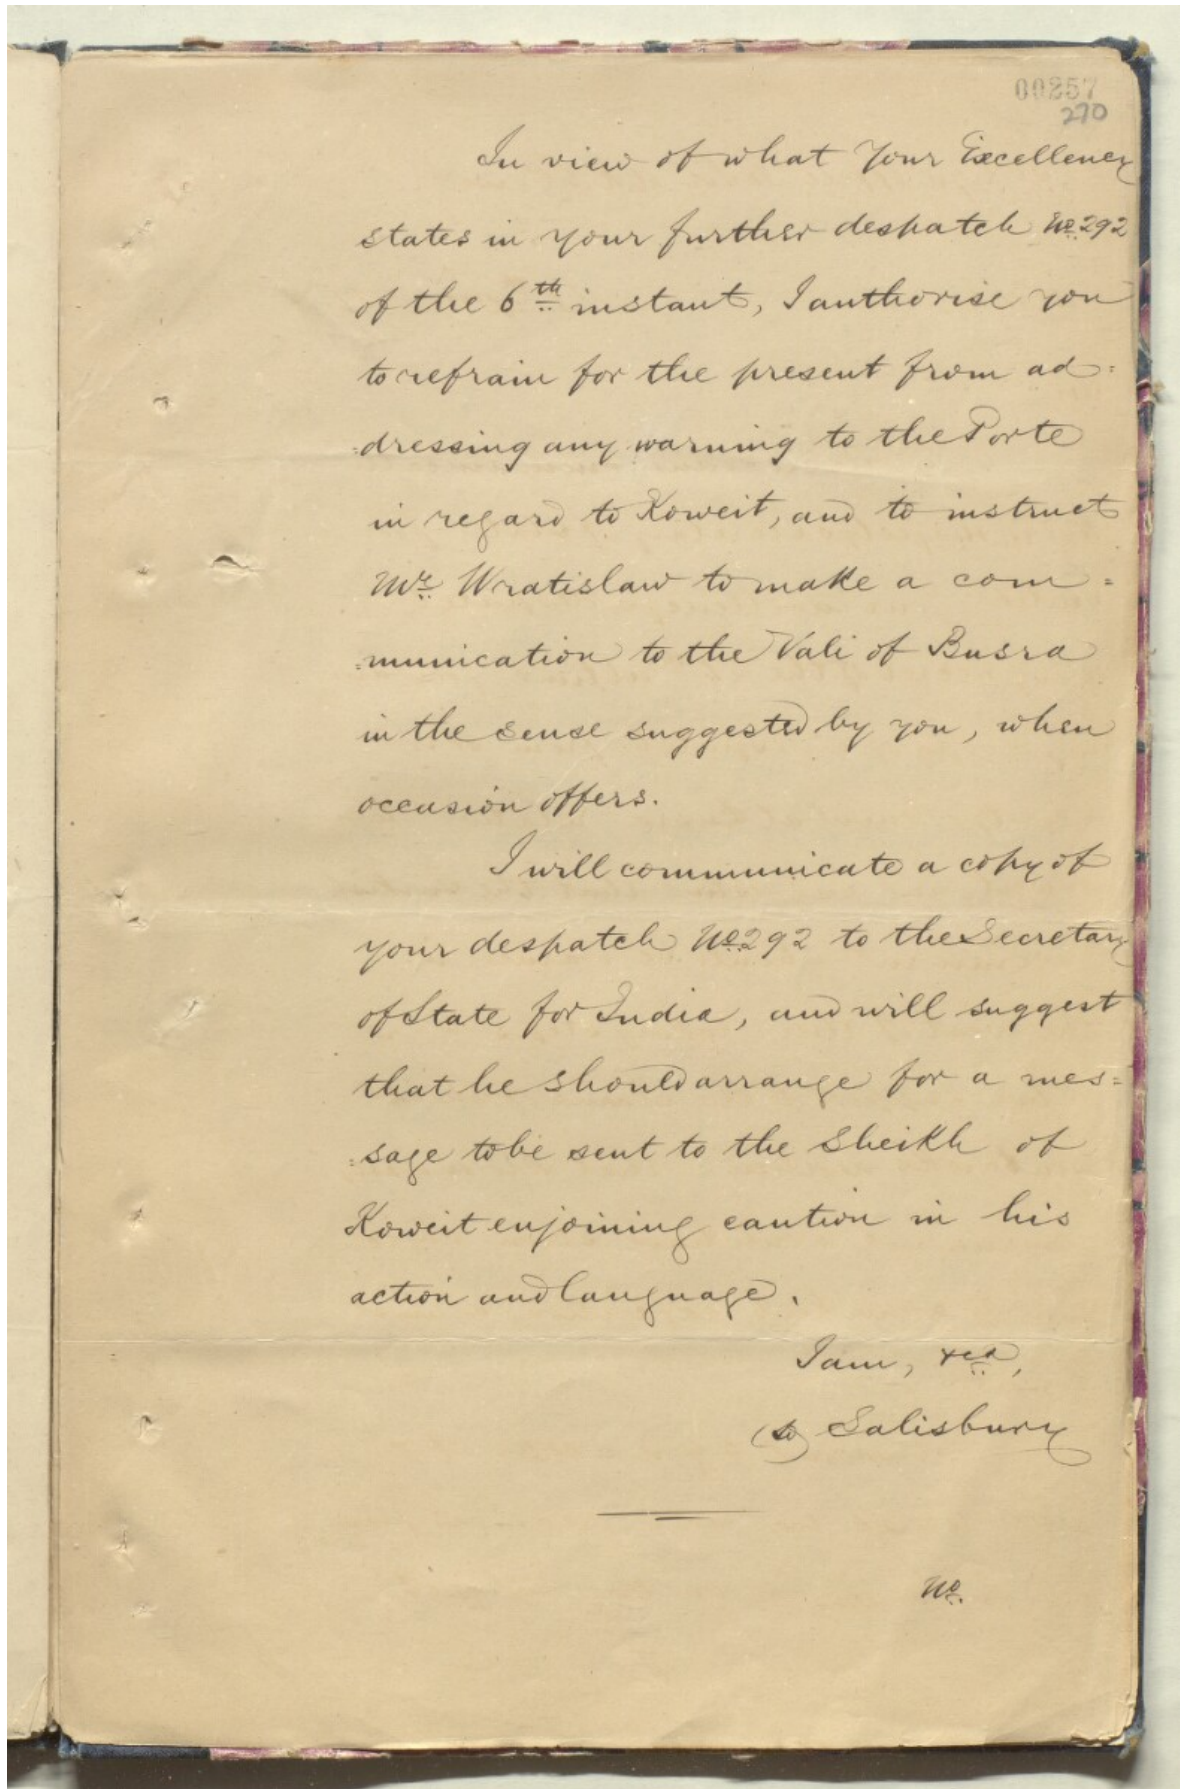 00257
270
In view of what Your Excellency
states in your further despatch No. 292
of the 6th instant, I authorise you
to refrain for the present from ad=
=dressing any warning to the Porte
in regard to Koweit, and to instruct
Mr. Wratislaw to make a com=
=munication to the Vali of Busra
in the sense suggested by you, when
occasion offers.
I will communicate a copy of
your despatch No. 292 to the Secretary
of State for India, and will suggest
that he should arrange for a mes=
=sage to be sent to the Sheikh of
Koweit enjoining caution in his
action and language.
I am, &ca.,
(sd) Salisbury
No.